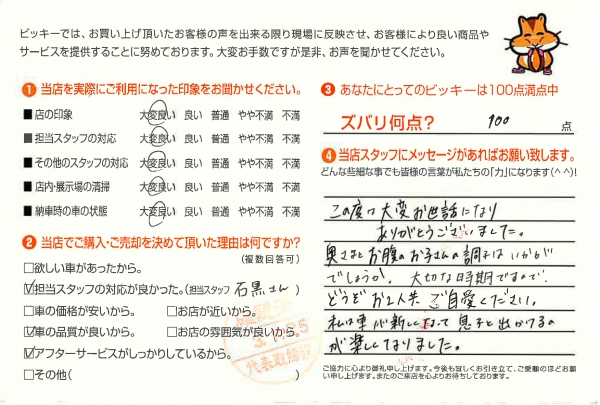 ビッキーでは、お買い上げ頂いたお客様の声を出来る限り現場に反映させ、お客様により良い商品や
サービスを提供することに努めております。大変お手数ですが是非、お声を聞かせてください。
1 当店を実際にご利用になった印象をお聞かせください。
■店の印象 大変良い 良い 普通 やや不満 不満
■担当スタッフの対応 大変良い 良い 普通 やや不満 不満
■その他のスタッフの対応 大変良い 良い 普通 やや不満 不満
■店内・展示場の清掃 大変良い 良い 普通 やや不満 不満
■納車時の車の状態 大変良い 良い 普通 やや不満 不満
2 当店でご購入・ご売却を決めて頂いた理由は何ですか?
(複数回答可)
□欲しい車があったから。
☑担当スタッフの対応が良かった。(担当スタッフ 石黒さん )
□車の価格が安いから。 □お店が近いから。
☑車の品質が良いから。 □お店の雰囲気が良いから。
☑アフターサービスがしっかりしているから。
□その他( )
代表取締役
3 あなたにとってのビッキーは100点満点中
ズバリ何点? 100 点
4 当店スタッフにメッセージがあればお願い致します。
どんな些細な事でも皆様の言葉が私たちの「力」になります(^^)!
この度は大変お世話になり
ありがとうございました。
奥さまとお腹のお子さんの調子はいかがが
でしょうか。大切な時期ですので、
どうぞお2人共ご自愛ください。
私は車が新しくなって息子と出かけるの
が楽しくなりました。
ご協力に心より御礼申し上げます。今後も宜しくお引き立て、ご愛顧のほどお願
い申し上げます。またのご来店を心よりお待ちしております。